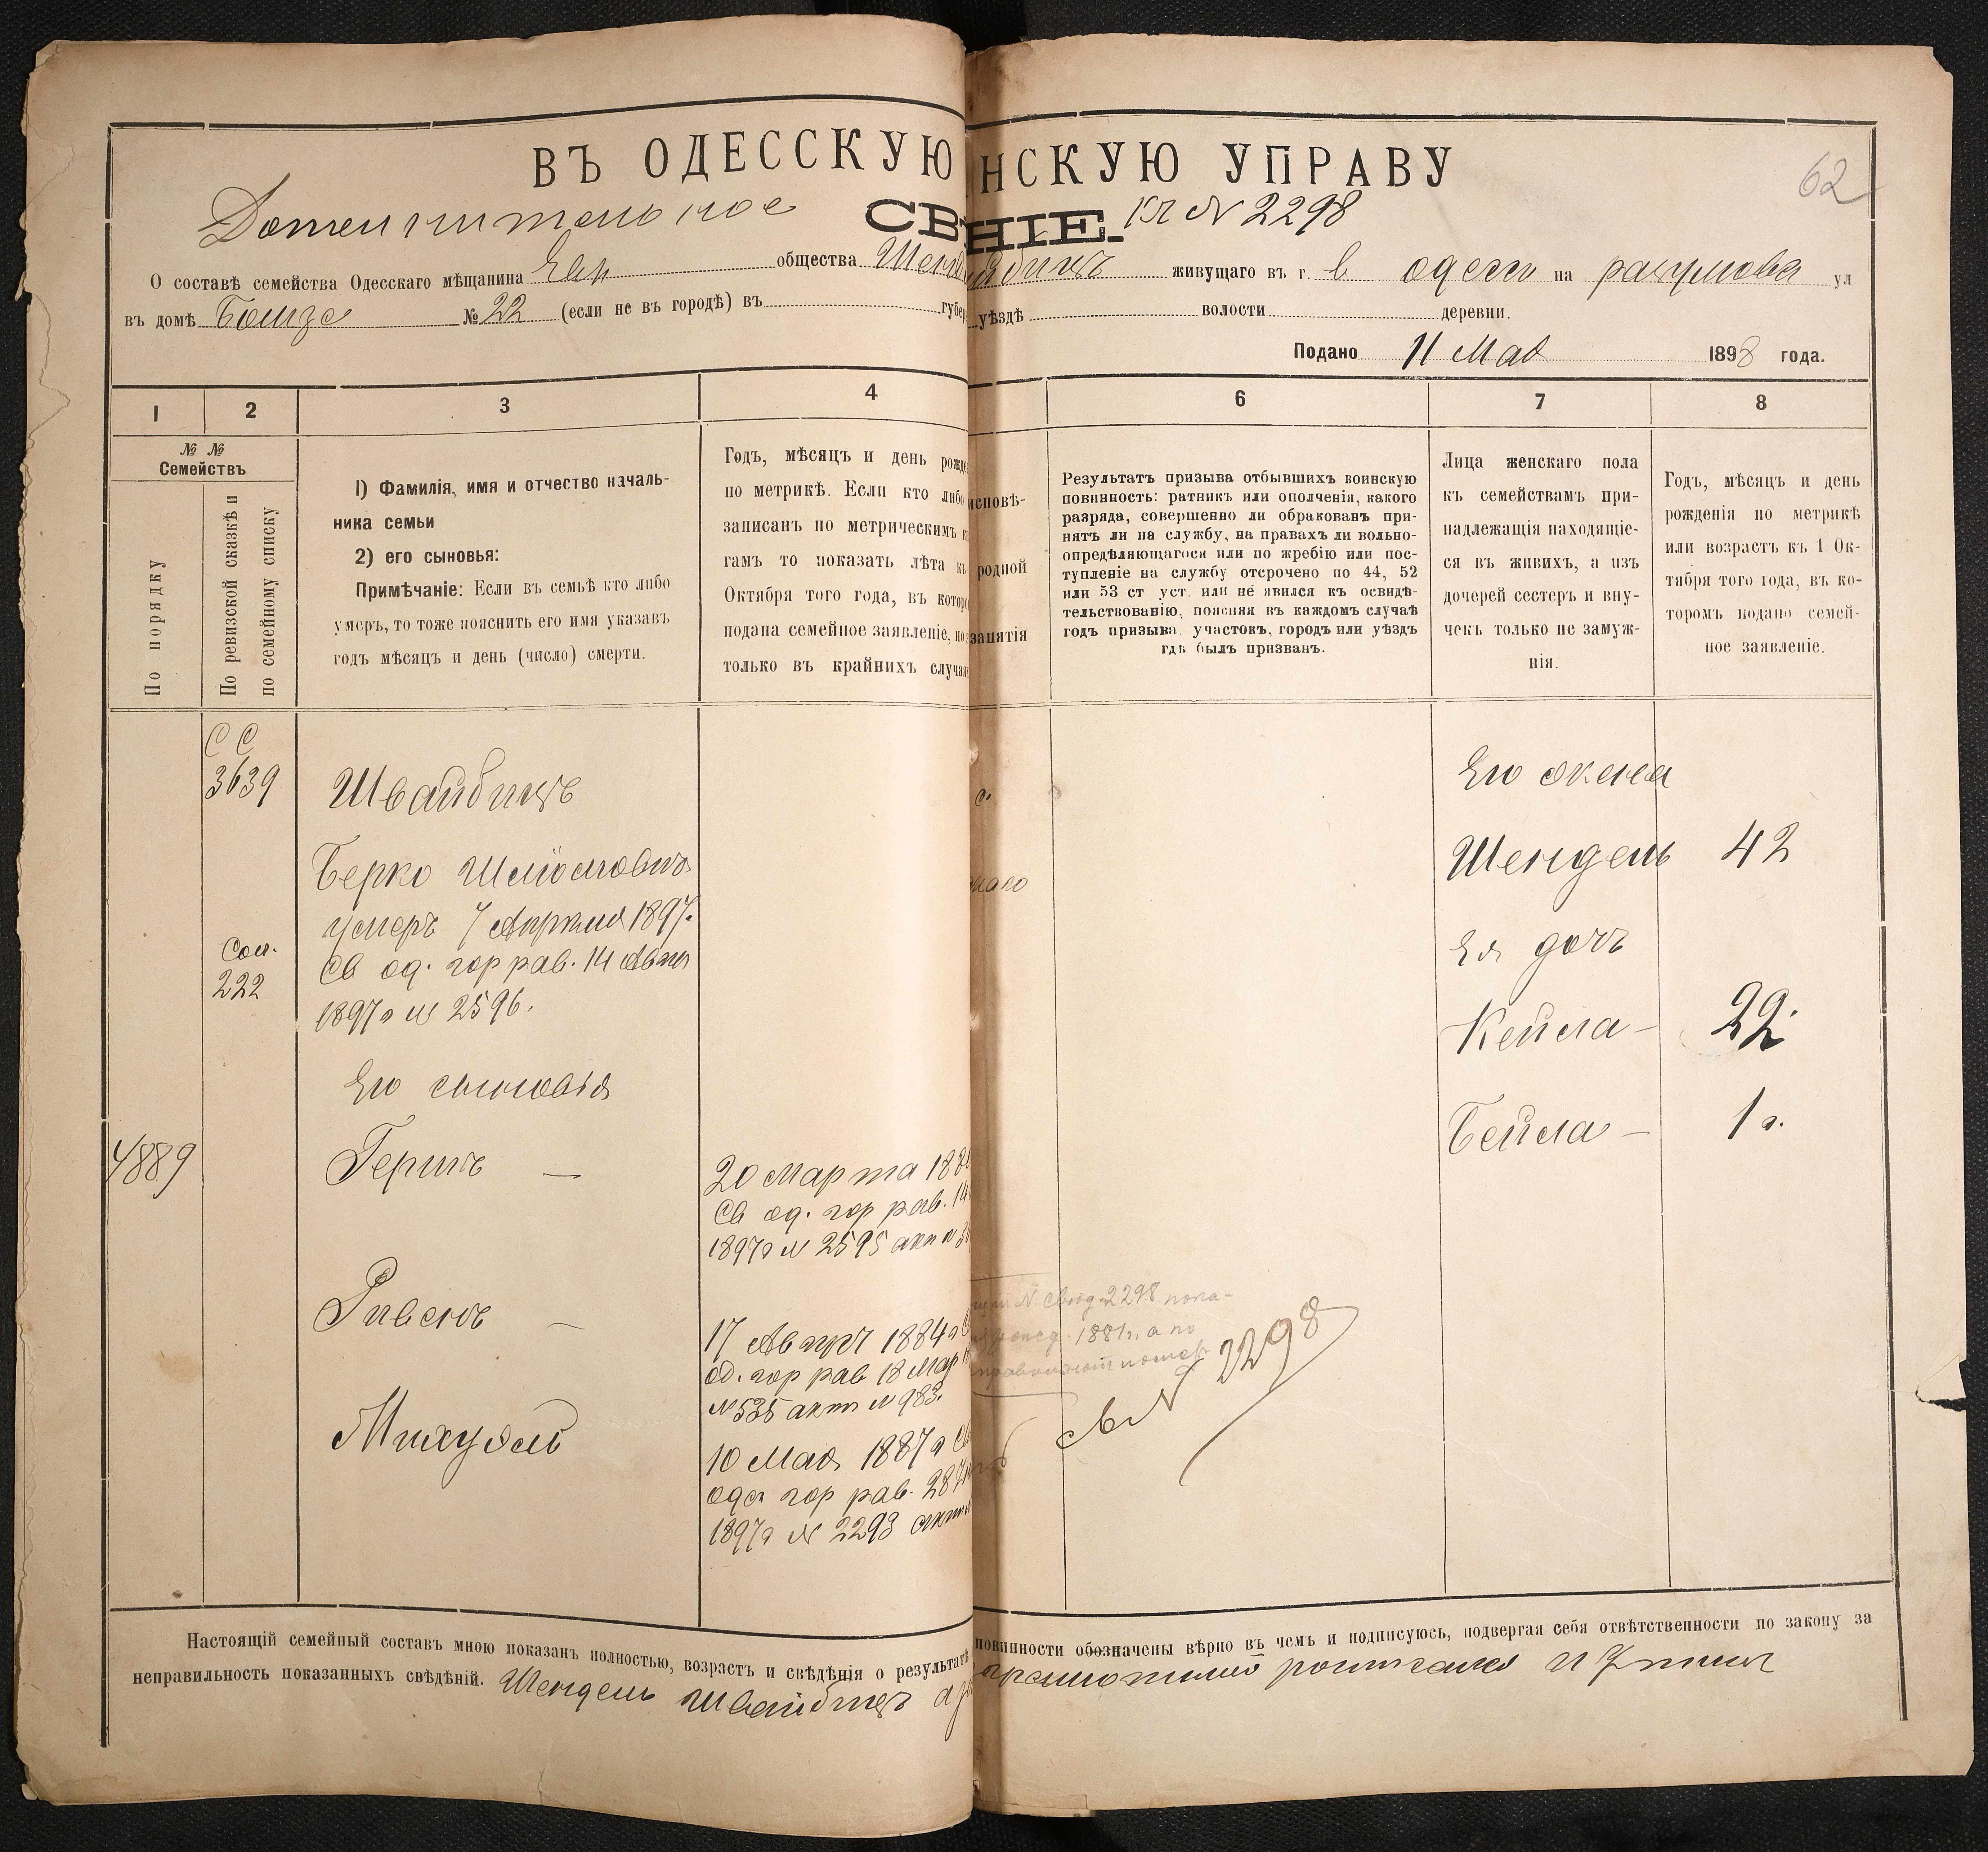 ВЪ ОДЕССКУЮ НСКУЮ УПРАВУ
62
Дополнительное СВ НІЕ. къ № 2298
О составѣ семейства Одесскаго мѣщанина Евр общества Шенд живущаго въ г. в одессы на разумова ул
въ домѣ №22 (если не въ городѣ) въ губер уѣздѣ волости деревни.
Подано 11 Мая 1898 года.
1 2 3 4 6 7 8
№ №
Семействъ
По порядку
По ревизской сказкѣ и
по семейному списку
1) Фамилія, имя и отчество началь-
ника семьи
2) его сыновья:
Примѣчаніе: Если въ семьѣ кто либо
умеръ, то тоже пояснить его имя указавъ
годъ мѣсяцъ и день (число) смерти.
Годъ, мѣсяцъ и день рожде
по метрикѣ. Если кто либо
записанъ по метрическимъ к
гамъ то показать лѣта къ
Октября того года, въ которо
подана семейное заявленіе, но
только въ крайнихъ случая
исповѣ-
родной
занятія
Результатъ призыва отбывшихъ воинскую
повинность: ратникъ или ополченія, какого
разряда, совершенно ли обракованъ при-
нятъ ли на службу, на правахъ ли вольно-
опредѣляющагося или по жребію или пос-
тупленіе на службу отсрочено по 44, 52
или 53 ст уст. или не явился къ освидѣ-
тельствованію, поясняя въ каждомъ случаѣ
годъ призыва, участокъ, городъ или уѣздъ
гдѣ былъ призванъ.
Лица женскаго пола
къ семействамъ при-
надлежащія находящіе-
ся въ живихъ, а изъ
дочерей сестеръ и вну-
чекъ только не замуж-
нія.
Годъ, мѣсяцъ и день
рожденія по метрикѣ
или возрастъ къ 1 Ок-
тября того года, въ ко-
торомъ подано семей-
ное заявленіе.
С С
3639
Швайбишъ
Берко Шлiомовичъ
умеръ 7 Апреля 1897.
Св од. гор рав. 14
1897г № 2596.
Сол.
222
Его сыновья
4889
Гершъ —
20 Марта 188
Св од. гор рав. 14
1897г № 2595 акт №3
Рувенъ —
17 Август 1884г С
од. гор рав 18 Мар
№535 актъ №983.
Михуэль
10 Мая 1887г Св
одес гор рав. 28
1897г № 2293 актъ
с.
№ 2298 пока-
1881г. а по
св № 2298
Его жена
Шендель 42
Ея дочь
Кейла — 22
Бейла — 1 г.
Настоящій семейный составъ мною показанъ полностью, возрастъ и свѣдѣнія о результатѣ повинности обозначены вѣрно въ чемъ и подписуюсь, подвергая себя отвѣтственности по закону за
неправильность показанныхъ свѣдѣній. Шендель Швайбишъ а